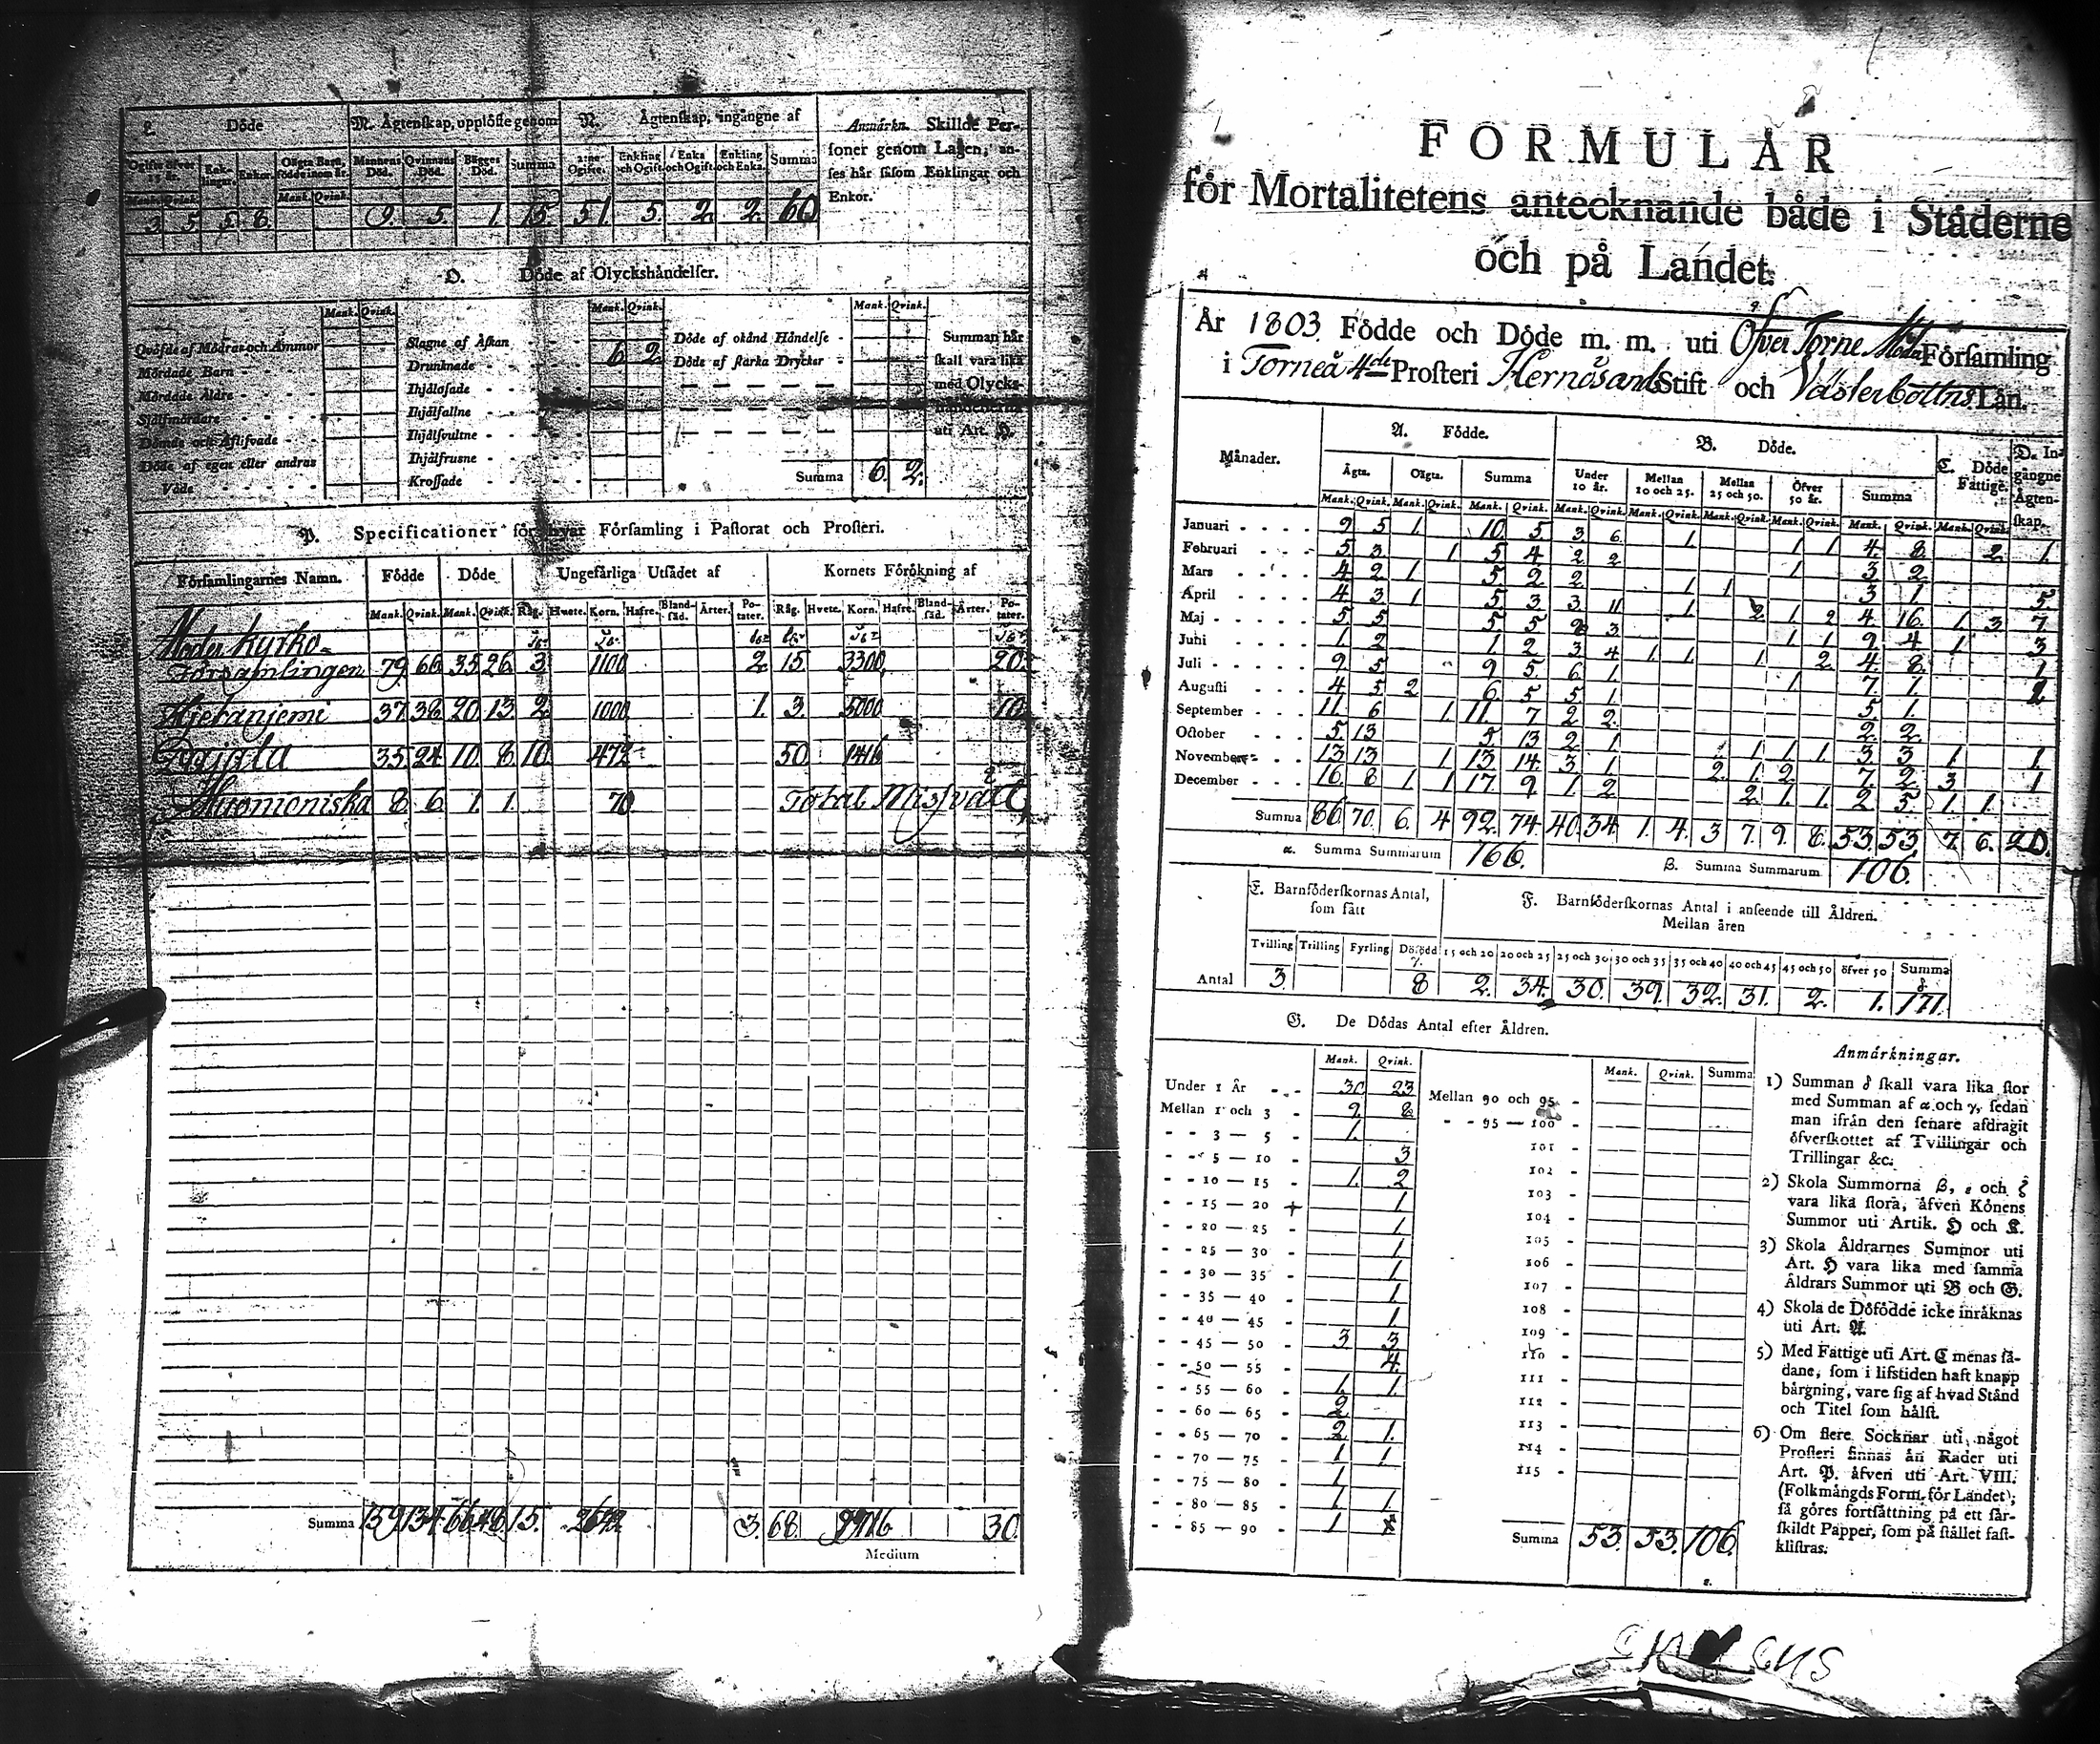 L. Döde
M. Ägtenskap, upplöste genom
N. Ägtenskap, ingångne af
Anmärkn. Skillde Per-
soner genom Lagen, an-
ses här såsom Enklingar och
Enkor.
Ogifte öfver 15 år. Enk-lingar. Enkor. Oägta Barn, födde inom år. Mannens Död. Qvinnans Död. Bägges Död. Summa 2:ne Ogifte. Enkling och Ogift. Enka och Ogift. Enkling och Enka. Summa
Mank. Qvink. Mank. Qvink.
3. 5. 5. 8. 9. 5. 1. 15. 51. 5. 2. 2. 60
O. Döde af Olyckshändelser.
Mank. Qvink. Mank. Qvink. Mank. Qvink.
Qväfde af Mödrar och Ammor Slagne af Åskan - Döde af okänd Händelse - Summan här
Mördade Barn - - Drunknade - - 6 2 Döde af starka Drycker - skall vara lika
Mördade Äldre - - Ihjälosade - - med Olycks-
Självmördare - - Ihjälfallne - - händelserna
Dömde och Aflifvade - - Ihjälsvultne - - uti Art. H.
Döde af egen eller andras Ihjälfrusne - -
Våde - - - - Krossade - - Summa 6. 2.
P. Specificationer för hvar Församling i Pastorat och Prosteri.
Församlingarnes Namn. Födde Döde Ungefärliga Utsädet af Kornets Förökning af
Mank. Qvink. Mank. Qvink. Råg. Hvete. Korn. Hafre. Bland-säd. Ärter. Po-tater. Råg. Hvete. Korn. Hafre. Bland-säd. Ärter. Po-tater.
Moder Kyrko-
Församlingen 79 66 35 26 3 1100 2 15 3300 20
Hjetanjemi 37 38 20 13 2 1000 1. 3. 5000 10
35 24 10 8 10 472 50 1416
Muonioniska 8 6 1. 1. 70 Total Misväxt
Summa 159 134 66 48 15. 2642 3. 68 30
Medium
FORMULÄR
för Mortalitetens antecknande både i Städerne
och på Landet.
År 1803 Födde och Döde m. m. uti Öfver Torne Moder Församling
i Torneå 4de Prosteri Hernösands Stift och Västerbottns Län.
Månader. A. Födde. B. Döde. C. Döde Fattige. D. In-gångne Ägten-skap.
Ägta. Oägta. Summa Under 10 år. Mellan 10 och 25. Mellan 25 och 50. Öfver 50 år. Summa
Mank. Qvink. Mank. Qvink. Mank. Qvink. Mank. Qvink. Mank. Qvink. Mank. Qvink. Mank. Qvink. Mank. Qvink. Mank. Qvink.
Januari - - - - 9 5 1. 10 5 3 6 1 1 1 4 8 2 1
Februari - - - 5 3 1 5 4 2 2 1 3 2
Mars - - - - 4 2 1 5 2 2 1 1 3 1 5
April - - - - 4 3 1 5 3 3 11 1 2 1 2 4 16 1 3 7
Maj - - - - 5 5 5 5 3 1 1 9 4 1 3
Juni - - - - 1. 2 1 2 3 4 1 1 1 2 4 8 1
Juli - - - - 9 5 9 5 6 1 1 7 1. 2
Augusti - - - 4 5 2 6 5 5 1. 5 1.
September - - - 11. 6 1. 11. 7 2 2 2 2
October - - - 5 13 5 13 2 1 1 1 1 1. 3 3 1. 1
November - - - 13 13 1 13 14 3 1 2. 1. 2 7. 2 3 1
December - - - 16 8 1 1 17. 9 1. 2 2 1. 1. 2 5. 1. 1.
Summa 86 70. 6. 4 92. 74 40 34 1. 4. 3 7. 9. 8. 53. 53. 7. 6. 20.
α. Summa Summarum 166. β. Summa Summarum 106.
E. Barnföderskornas Antal, som fått
F. Barnföderskornas Antal i anseende till Åldren. Mellan åren
Tvilling Trilling Fyrling Dödfödd γ. 15 och 20 20 och 25 25 och 30 30 och 35 35 och 40 40 och 45 45 och 50 öfver 50 Summa δ
Antal 3. 8 2. 34. 30. 39. 32. 31. 2. 1. 171.
G. De Dödas Antal efter Åldren.
Mank. Qvink. Mank. Qvink. Summa
Under 1 År - - 30 23 Mellan 90 och 95 -
Mellan 1 och 3 - 9. 8 - - 95 — 100 -
- - 3 — 5 - 1. 101 -
- - 5 — 10 - 3 102 -
- - 10 — 15 - 1. 2 103 -
- - 15 — 20 1 104 -
- - 20 — 25 - 1 105 -
- - 25 — 30 - 1 106 -
- - 30 — 35 - 1 107 -
- - 35 — 40 - 1 108 -
- - 40 — 45 - 1 109 -
- - 45 — 50 - 3 3 110 -
- - 50 — 55 - 4. 111 -
- - 55 — 60 - 1. 1. 112 -
- - 60 — 65 - 2 113 -
- - 65 — 70 - 2 1. 114 -
- - 70 — 75 - 1 1 115 -
- - 75 — 80 - 1
- - 80 — 85 - 1. 1.
- - 85 — 90 - 1 Summa 53. 53. 106.
ε.
Anmärkningar.
1) Summan δ skall vara lika stor
med Summan af α och γ, sedan
man ifrån den senare afdragit
öfverskottet af Tvillingar och
Trillingar &c.
2) Skola Summorna β, ε och ζ
vara lika stora, äfven Könens
Summor uti Artik. H och K.
3) Skola Åldrarnes Summor uti
Art. H vara lika med samma
Åldrars Summor uti B och G.
4) Skola de Döfödde icke inräknas
uti Art. A.
5) Med Fattige uti Art. C menas så-
dane, som i lifstiden haft knapp
bärgning, vare sig af hvad Stånd
och Titel som hälst.
6) Om flere Socknar uti något
Prosteri finnas än Rader uti
Art. P. äfven uti Art. VIII.
(Folkmängds Form. för Landet);
så göres fortsättning på ett sär-
skildt Papper, som på stället fast-
klistras.